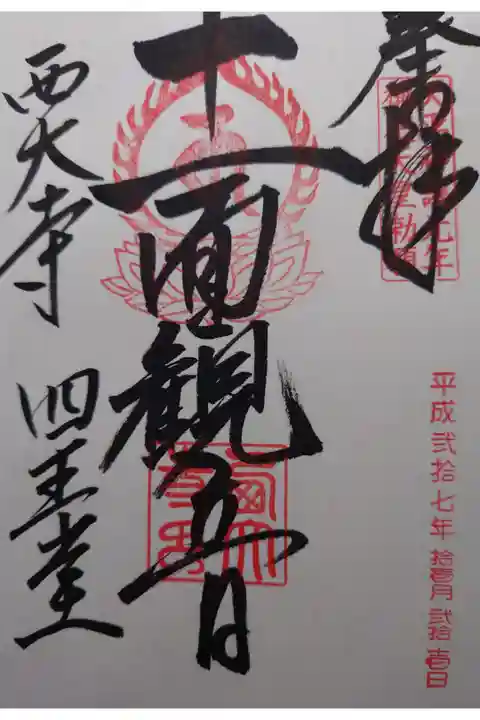 奉拝
平成弐拾七年拾壹月弐拾壹日
十一面観音
西大寺 四王堂